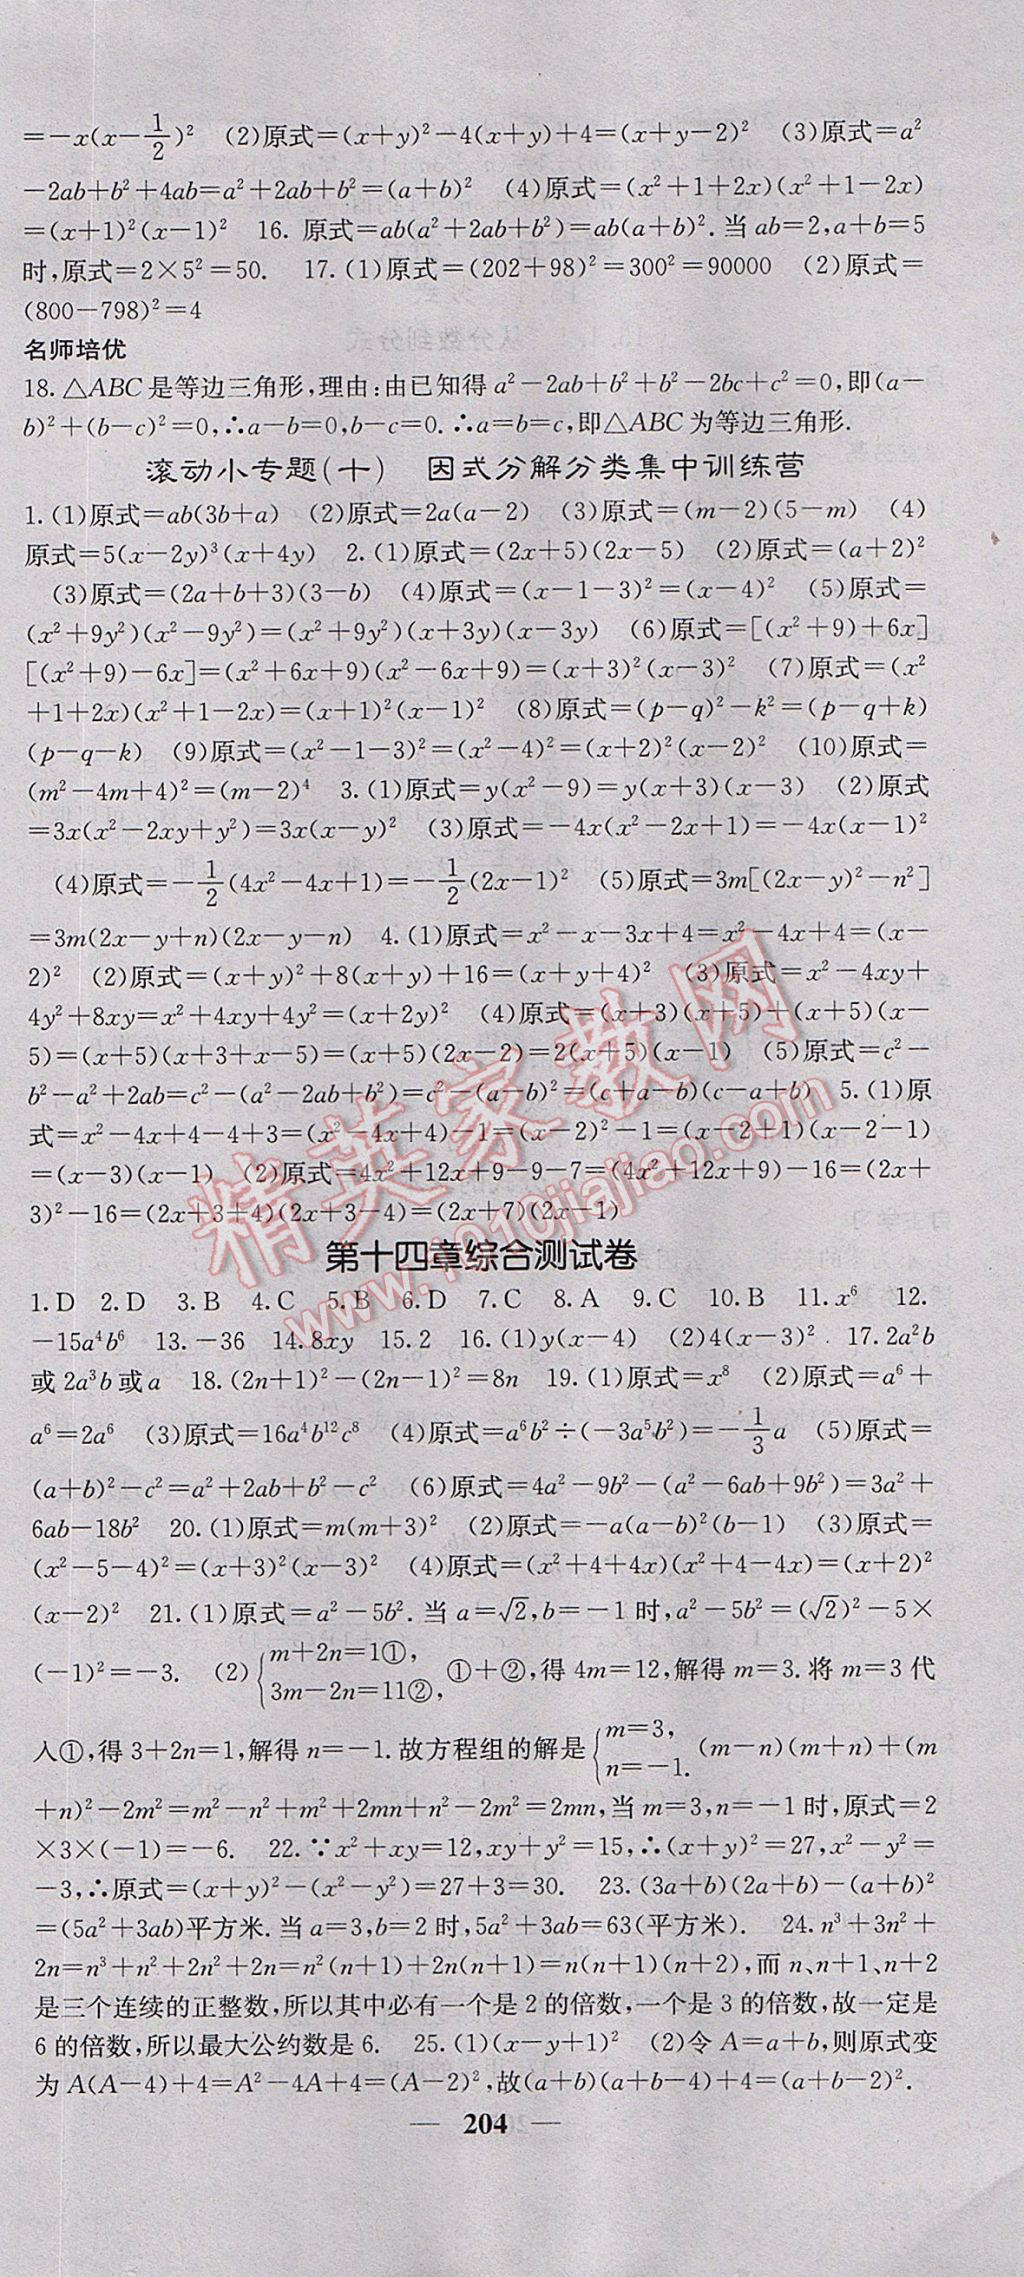 =-x(x-1/2)² (2)原式=(x+y)²-4(x+y)+4=(x+y-2)² (3)原式=a²
-2ab+b²+4ab=a²+2ab+b²=(a+b)² (4)原式=(x²+1+2x)(x²+1-2x)
=(x+1)²(x-1)² 16. 原式=ab(a²+2ab+b²)=ab(a+b)².当ab=2,a+b=5
时,原式=2×5²=50. 17.(1)原式=(202+98)²=300²=90000 (2)原式=
(800-798)²=4
名师培优
18.△ABC是等边三角形,理由:由已知得a²-2ab+b²+b²-2bc+c²=0,即(a-
b)²+(b-c)²=0,∴a-b=0,b-c=0.∴a=b=c,即△ABC为等边三角形.
滚动小专题(十) 因式分解分类集中训练营
1.(1)原式=ab(3b+a) (2)原式=2a(a-2) (3)原式=(m-2)(5-m) (4)
原式=5(x-2y)³(x+4y) 2.(1)原式=(2x+5)(2x-5) (2)原式=(a+2)²
(3)原式=(2a+b+3)(3-b) (4)原式=(x-1-3)²=(x-4)² (5)原式=
(x²+9y²)(x²-9y²)=(x²+9y²)(x+3y)(x-3y) (6)原式=[(x²+9)+6x]
[(x²+9)-6x]=(x²+6x+9)(x²-6x+9)=(x+3)²(x-3)² (7)原式=(x²
+1+2x)(x²+1-2x)=(x+1)²(x-1)² (8)原式=(p-q)²-k²=(p-q+k)
(p-q-k) (9)原式=(x²-1-3)²=(x²-4)²=(x+2)²(x-2)² (10)原式=
(m²-4m+4)²=(m-2)⁴ 3.(1)原式=y(x²-9)=y(x+3)(x-3) (2)原式
=3x(x²-2xy+y²)=3x(x-y)² (3)原式=-4x(x²-2x+1)=-4x(x-1)²
(4)原式=-1/2(4x²-4x+1)=-1/2(2x-1)² (5)原式=3m[(2x-y)²-n²]
=3m(2x-y+n)(2x-y-n) 4.(1)原式=x²-x-3x+4=x²-4x+4=(x-
2)² (2)原式=(x+y)²+8(x+y)+16=(x+y+4)² (3)原式=x²-4xy+
4y²+8xy=x²+4xy+4y²=(x+2y)² (4)原式=(x+3)(x+5)+(x+5)(x-
5)=(x+5)(x+3+x-5)=(x+5)(2x-2)=2(x+5)(x-1) (5)原式=c²-
b²-a²+2ab=c²-(a²-2ab+b²)=c²-(a-b)²=(c+a-b)(c-a+b) 5.(1)原
式=x²-4x+4-4+3=(x²-4x+4)-1=(x-2)²-1=(x-2+1)(x-2-1)
=(x-3)(x-1) (2)原式=4x²+12x+9-9-7=(4x²+12x+9)-16=(2x+
3)²-16=(2x+3+4)(2x+3-4)=(2x+7)(2x-1)
第十四章综合测试卷
1.D 2.D 3.B 4.C 5.B 6.D 7.C 8.A 9.C 10.B 11.x⁶ 12.
-15a⁴b⁶ 13.-36 14.8xy 15.2 16.(1)y(x-4) (2)4(x-3)² 17.2a²b
或2a³b或a 18.(2n+1)²-(2n-1)²=8n 19.(1)原式=x⁸ (2)原式=a⁶+
a⁶=2a⁶ (3)原式=16a⁴b¹²c⁸ (4)原式=a⁶b²÷(-3a⁵b²)=-1/3a (5)原式=
(a+b)²-c²=a²+2ab+b²-c² (6)原式=4a²-9b²-(a²-6ab+9b²)=3a²+
6ab-18b² 20.(1)原式=m(m+3)² (2)原式=-a(a-b)²(b-1) (3)原式=
(x²-5-4)²=(x+3)²(x-3)² (4)原式=(x²+4+4x)(x²+4-4x)=(x+2)²
(x-2)² 21.(1)原式=a²-5b².当a=√2,b=-1时,a²-5b²=(√2)²-5×
(-1)²=-3. (2){m+2n=1①, 3m-2n=11②, ①+②,得4m=12,解得m=3.将m=3代
入①,得3+2n=1,解得n=-1.故方程组的解是{m=3, n=-1. (m-n)(m+n)+(m
+n)²-2m²=m²-n²+m²+2mn+n²-2m²=2mn,当m=3,n=-1时,原式=2
×3×(-1)=-6. 22.∵x²+xy=12,xy+y²=15,∴(x+y)²=27,x²-y²=
-3,∴原式=(x+y)²-(x²-y²)=27+3=30. 23.(3a+b)(2a+b)-(a+b)²
=(5a²+3ab)平方米.当a=3,b=2时,5a²+3ab=63(平方米). 24.n³+3n²+
2n=n³+n²+2n²+2n=n²(n+1)+2n(n+1)=n(n+1)(n+2),而n、n+1、n+2
是三个连续的正整数,所以其中必有一个是2的倍数,一个是3的倍数,故一定是
6的倍数,所以最大公约数是6. 25.(1)(x-y+1)² (2)令A=a+b,则原式变
为A(A-4)+4=A²-4A+4=(A-2)²,故(a+b)(a+b-4)+4=(a+b-2)².
— 204 —
精英家教网
www.1010jiajiao.com